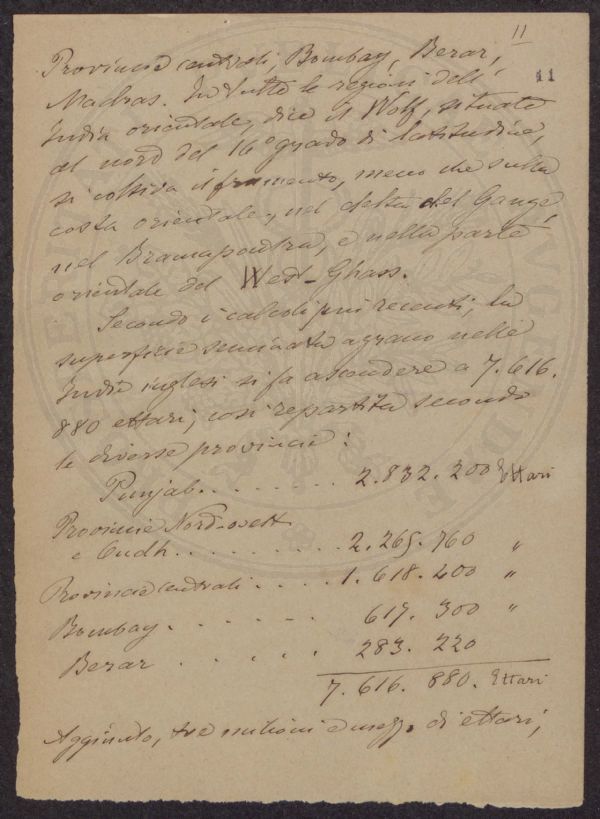 11
11
Provincie centrali, Bombay, Berar,
Madras. In tutte le regioni dell'
India orientale, dice il Wolf, situate
al nord del 16° grado di latitudine,
si coltiva il frumento, meno che sulla
costa orientale, nel delta del Gange,
nel Bramapoutra, e nella parte
orientale del West-Ghass.
Secondo i calcoli più recenti, la
superficie seminata a grano nelle
Indie inglesi si fa ascendere a 7.616.
880 ettari, così repartita secondo
le diverse provincie:
Punjab . . . . . . . . 2.832.200 Ettari
Provincie Nord-ovest
e Oudh . . . . . . . . . 2.265.760 "
Provincie centrali . . . . 1.618.400 "
Bombay . . . . . . 617.300 "
Berar . . . . . 283.220
7.616.880. Ettari
Aggiunto, tre milioni e mezzo di ettari,